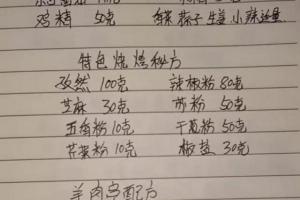 鸡精 50克 生姜 小辣适量
特色烧烤秘方
孜然 100克 辣椒粉 80克
芝麻 30克 苏粉 50克
五香粉 10克 干葱粉 50克
芹菜粉 10克 椒盐 30克
羊肉串配方